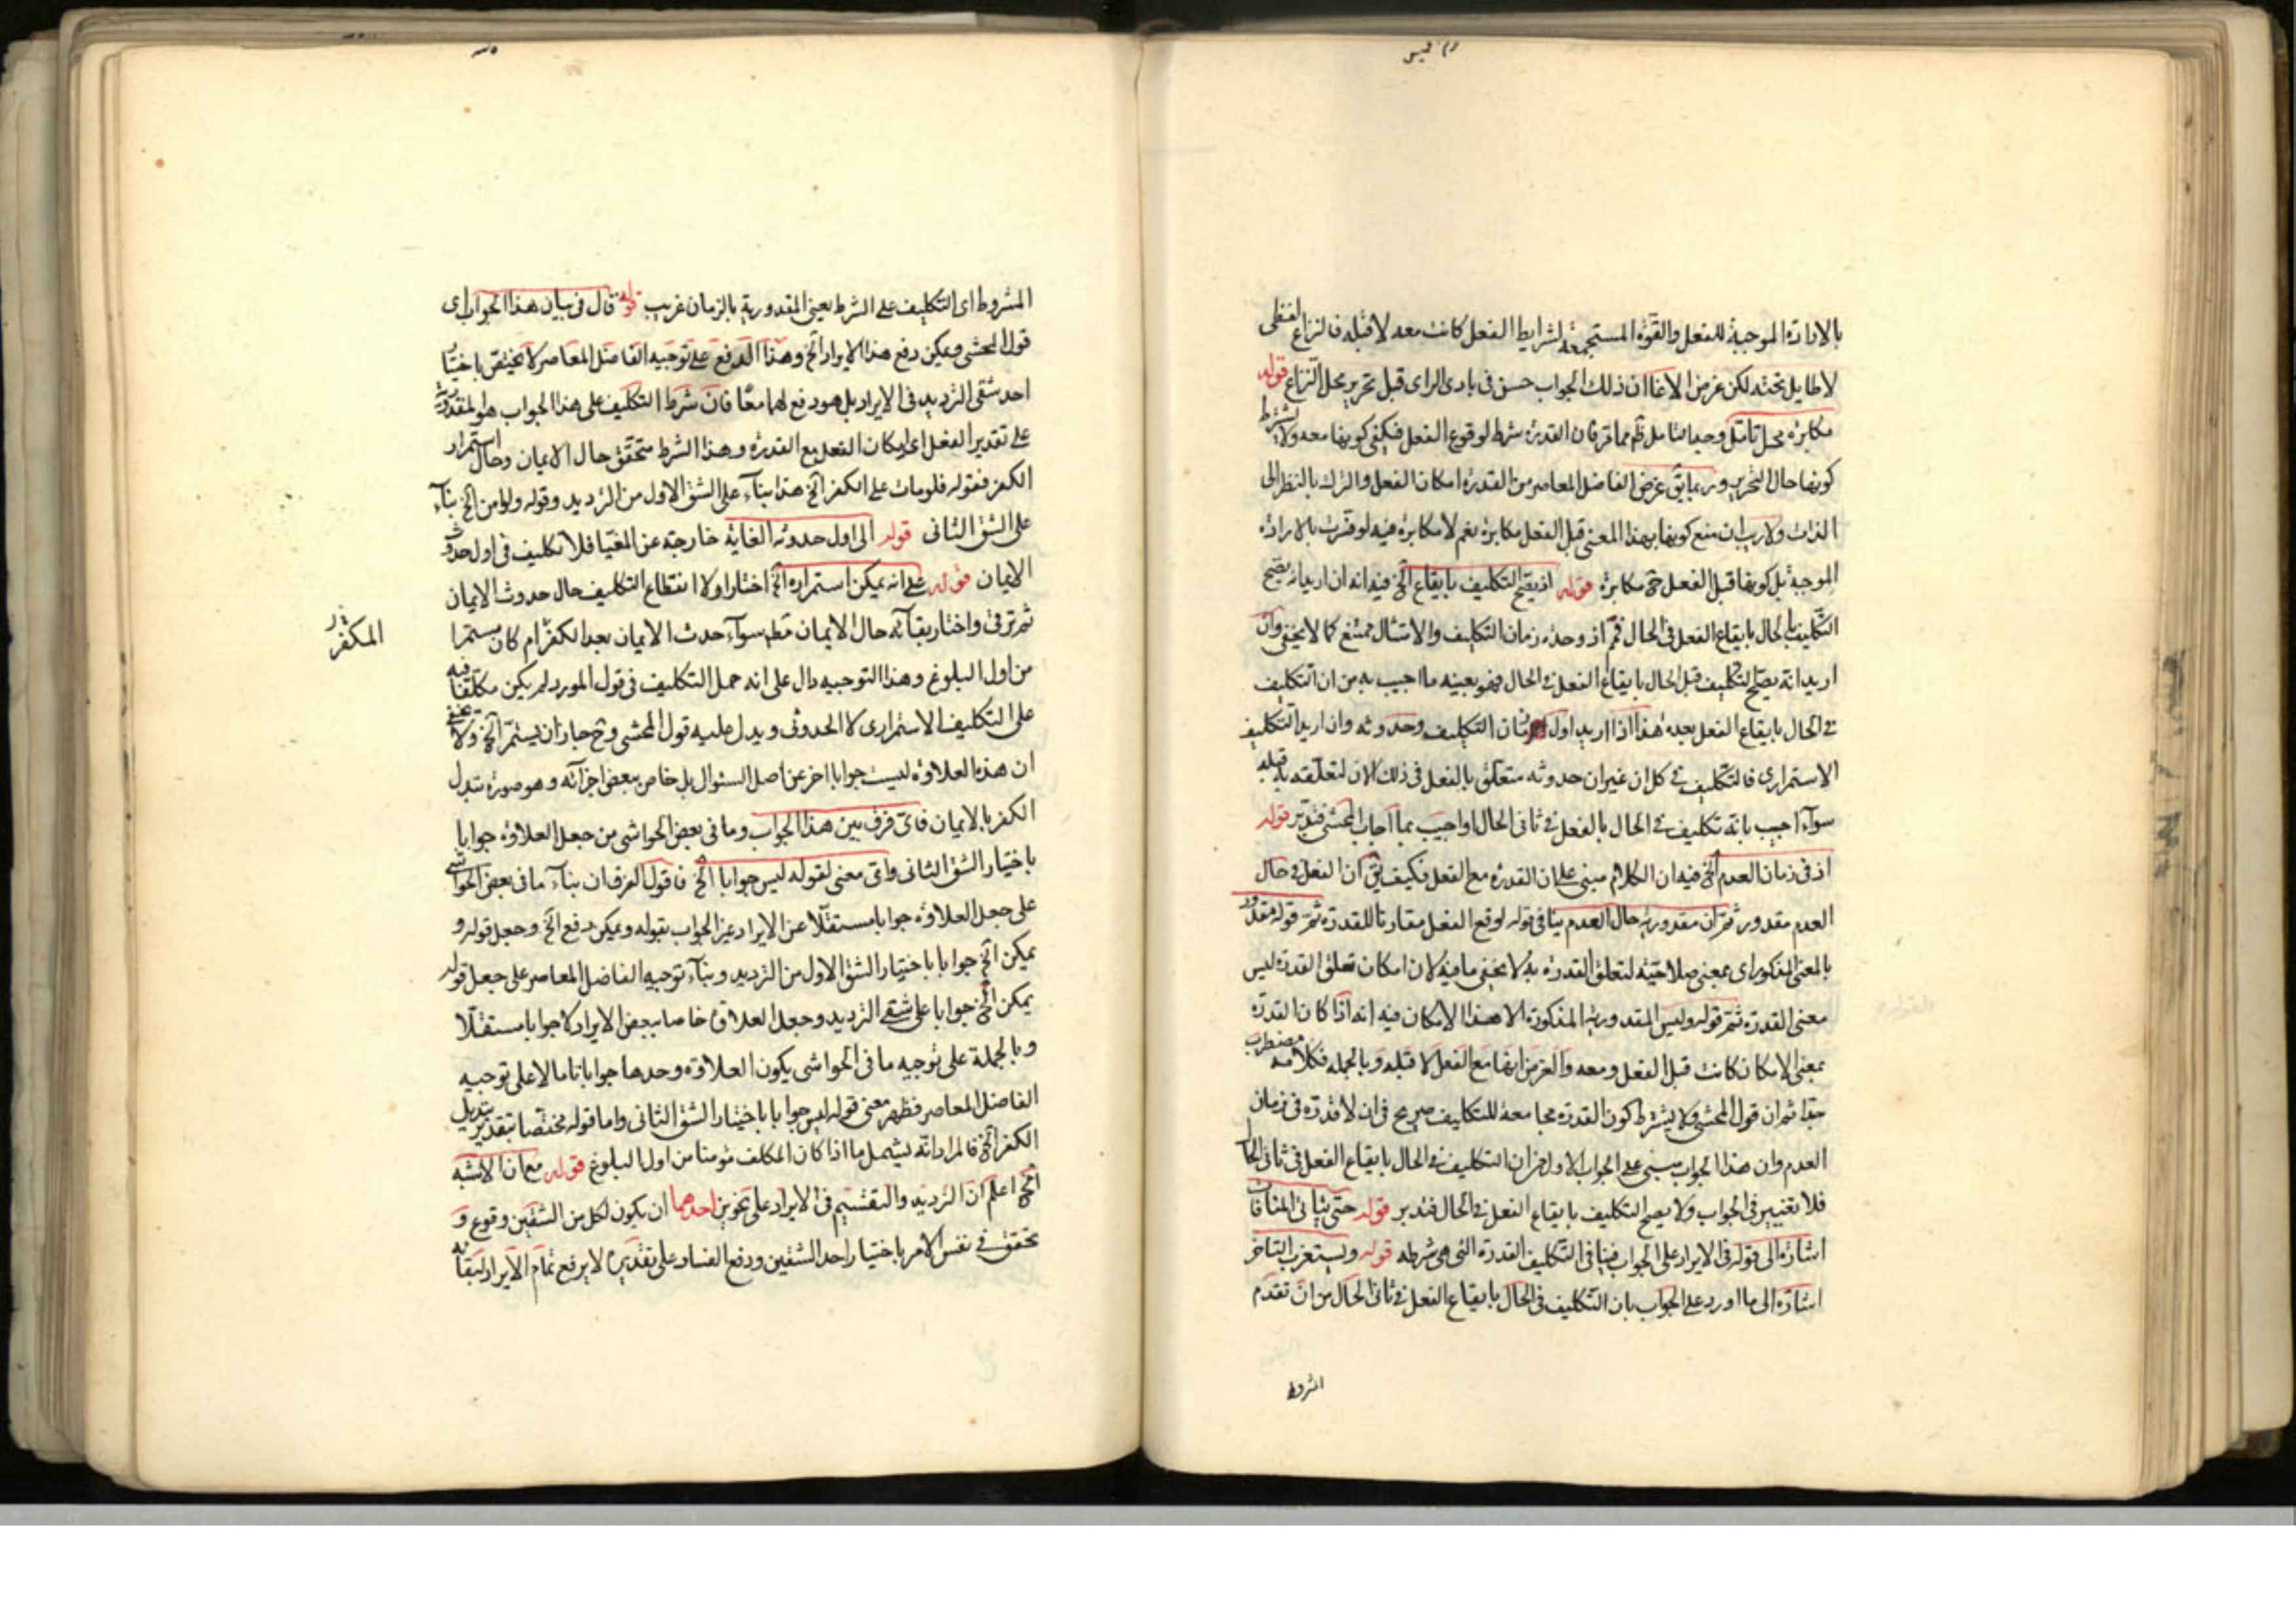 بالارادة الموجبة للفعل والقوة المستجمعة لشرايط الفعل كانت معه لا قبله فالنزاع لفظى
لا طايل تحته لكن غرض الاغا ان ذلك الجواب حسن فى بادى الراى قبل تحرير محل النزاع قوله
مكابرة محل تامل وجدانا مل ظم مما قر فان القدرة شرط لوقوع الفعل فيكفى كونها معه ولا يشترط
كونها حال التحرير وربما يق غرض الفاضل المعاصر من القدرة امكان الفعل والترك بالنظر الى
الذات ولا ريب ان منع كونها بهذا المعنى قبل الفعل مكابرة نعم لا مكابرة فيه لو فسرت بالارادة
الموجبة بل كونها قبل الفعل ح مكابرة قوله اذ يصح التكليف بايقاع الخ فيه انه ان اريد انه يصح
التكليف بالحال بايقاع الفعل فى الحال فم اذ وحدة زمان التكليف والامتثال ممتنع كما لا يخفى وان
اريد انه يصح التكليف قبل الحال بايقاع الفعل فى الحال فهو بعينه ما اجيب به من ان التكليف
فى الحال بايقاع الفعل بعده هذا اذا اريد اول زمان التكليف وحدوثه وان اريد التكليف
الاستمرارى فالتكليف فى كل ان غير ان حدوثه متعلق بالفعل فى ذلك الان لتعلقه به قبله
سواء اجيب بانه تكليف فى الحال بالفعل فى ثانى الحال او اجيب بما اجاب المحشى فتدبر قوله
اذ فى زمان العدم الخ فيه ان الكلام مبنى على ان القدرة مع الفعل فكيف يق ان الفعل فى حال
العدم مقدور ثم ان مقدوريه حال العدم ينافى قوله لوقع الفعل مقارنا للقدرة ثم قوله مقدور
بالمعنى المذكور اى بمعنى صلاحيته لتعلق القدرة به لا يخفى ما فيه لان امكان تعلق القدرة ليس
معنى القدرة ثم قوله وليس المقدورية المذكورة الا هذا الامكان فيه انه اذا كان القدرة
بمعنى الامكان كانت قبل الفعل ومعه والغرض انها مع الفعل لا قبله وبالجمله فكلامه مضطرب
جدا ثم ان قول المحشى ولا يشترط كون القدرة مجامعة للتكليف صريح فى ان لا قدرة فى زمان
العدم وان هذا الجواب مبنى على الجواب الاول من ان التكليف فى الحال بايقاع الفعل فى ثانى الحال
فلا تغيير فى الجواب ولا يصح التكليف بايقاع الفعل فى الحال فتدبر قوله حتى يتاتى المنافات
اشارة الى قوله فى الايراد على الجواب فينافى التكليف القدرة التى هى شرطه قوله ويستغرب التاخر
اشارة الى ما اورد على الجواب بان التكليف فى الحال بايقاع الفعل فى ثانى الحال من ان تقدم
المشروط
المشروط اى التكليف على الشرط يعنى المقدورية بالزمان غريب قوله قال فى بيان هذا الجواب اى
قول المحشى ويمكن دفع هذا الايراد الخ وهذا الدفع على توجيه الفاضل المعاصر لا يختص باختيار
احد شقى الترديد فى الايراد بل هو دفع لهما معا فان شرط التكليف على هذا الجواب هو المقدورية
على تقدير الفعل اى امكان الفعل مع القدرة وهذا الشرط متحقق حال الايمان وحال استمرار
الكفر فقوله فلومات على الكفر الخ هذا بناء على الشق الاول من الترديد وقوله ولو امن الخ بناء
على الشق الثانى قوله الى اول حدوثه الغاية خارجة عن المغيا فلا تكليف فى اول حدوث
الايمان قوله على انه يمكن استمراره الخ اختار اولا انقطاع التكليف حال حدوث الايمان
ثم ترقى واختار بقائه حال الايمان مط سواء حدث الايمان بعد الكفر ام كان مستمرا
من اول البلوغ وهذا التوجيه دال على انه حمل التكليف فى قول المورد لم يكن مكلفا فيه
على التكليف الاستمرارى لا الحدوثى ويدل عليه قول المحشى وح جاز ان يستمر الخ ولا يخفى
ان هذه العلاوة ليست جوابا اخر عن اصل السئوال بل خاص ببعض اجزائه وهو صورة تبدل
الكفر بالايمان فاى فرق بين هذا الجواب وما فى بعض الحواشى من جعل العلاوة جوابا
باختيار الشق الثانى واى معنى لقوله ليس جوابا الخ فاقول الفرق ان بناء ما فى بعض الحواشى
على جعل العلاوة جوابا مستقلا عن الايراد غير الجواب بقوله ويمكن دفع الخ وجعل قوله و
يمكن الخ جوابا باختيار الشق الاول من الترديد وبناء توجيه الفاضل المعاصر على جعل قوله
يمكن الخ جوابا على شقى الترديد وجعل العلاوة خاصا ببعض الايراد لا جوابا مستقلا
وبالجملة على توجيه ما فى الحواشى يكون العلاوة وحدها جوابا تاما لا على توجيه
الفاضل المعاصر فظهر معنى قوله ليس جوابا باختيار الشق الثانى واما قوله مختصا بتقدير تبديل
الكفر الخ فالمراد انه ليشمل ما اذا كان المكلف مؤمنا من اول البلوغ قوله مع ان الاشبه
الخ اعلم ان الترديد والتقسيم فى الايراد على نحوين احدهما ان يكون لكل من الشقين وقوع و
تحقق فى نفس الامر باختيار احد الشقين ودفع الفساد على تقديره لا يرفع تمام الايراد لبقائه
المكفر